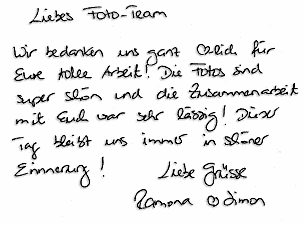 Liebes Foto-Team
Wir bedanken uns ganz ♡lich für
Eure tolle Arbeit! Die Fotos sind
super schön und die Zusammenarbeit
mit Euch war sehr lässig! Dieser
Tag bleibt uns immer in schöner
Erinnerung!
Liebe Grüsse
Ramona ♡ Simon